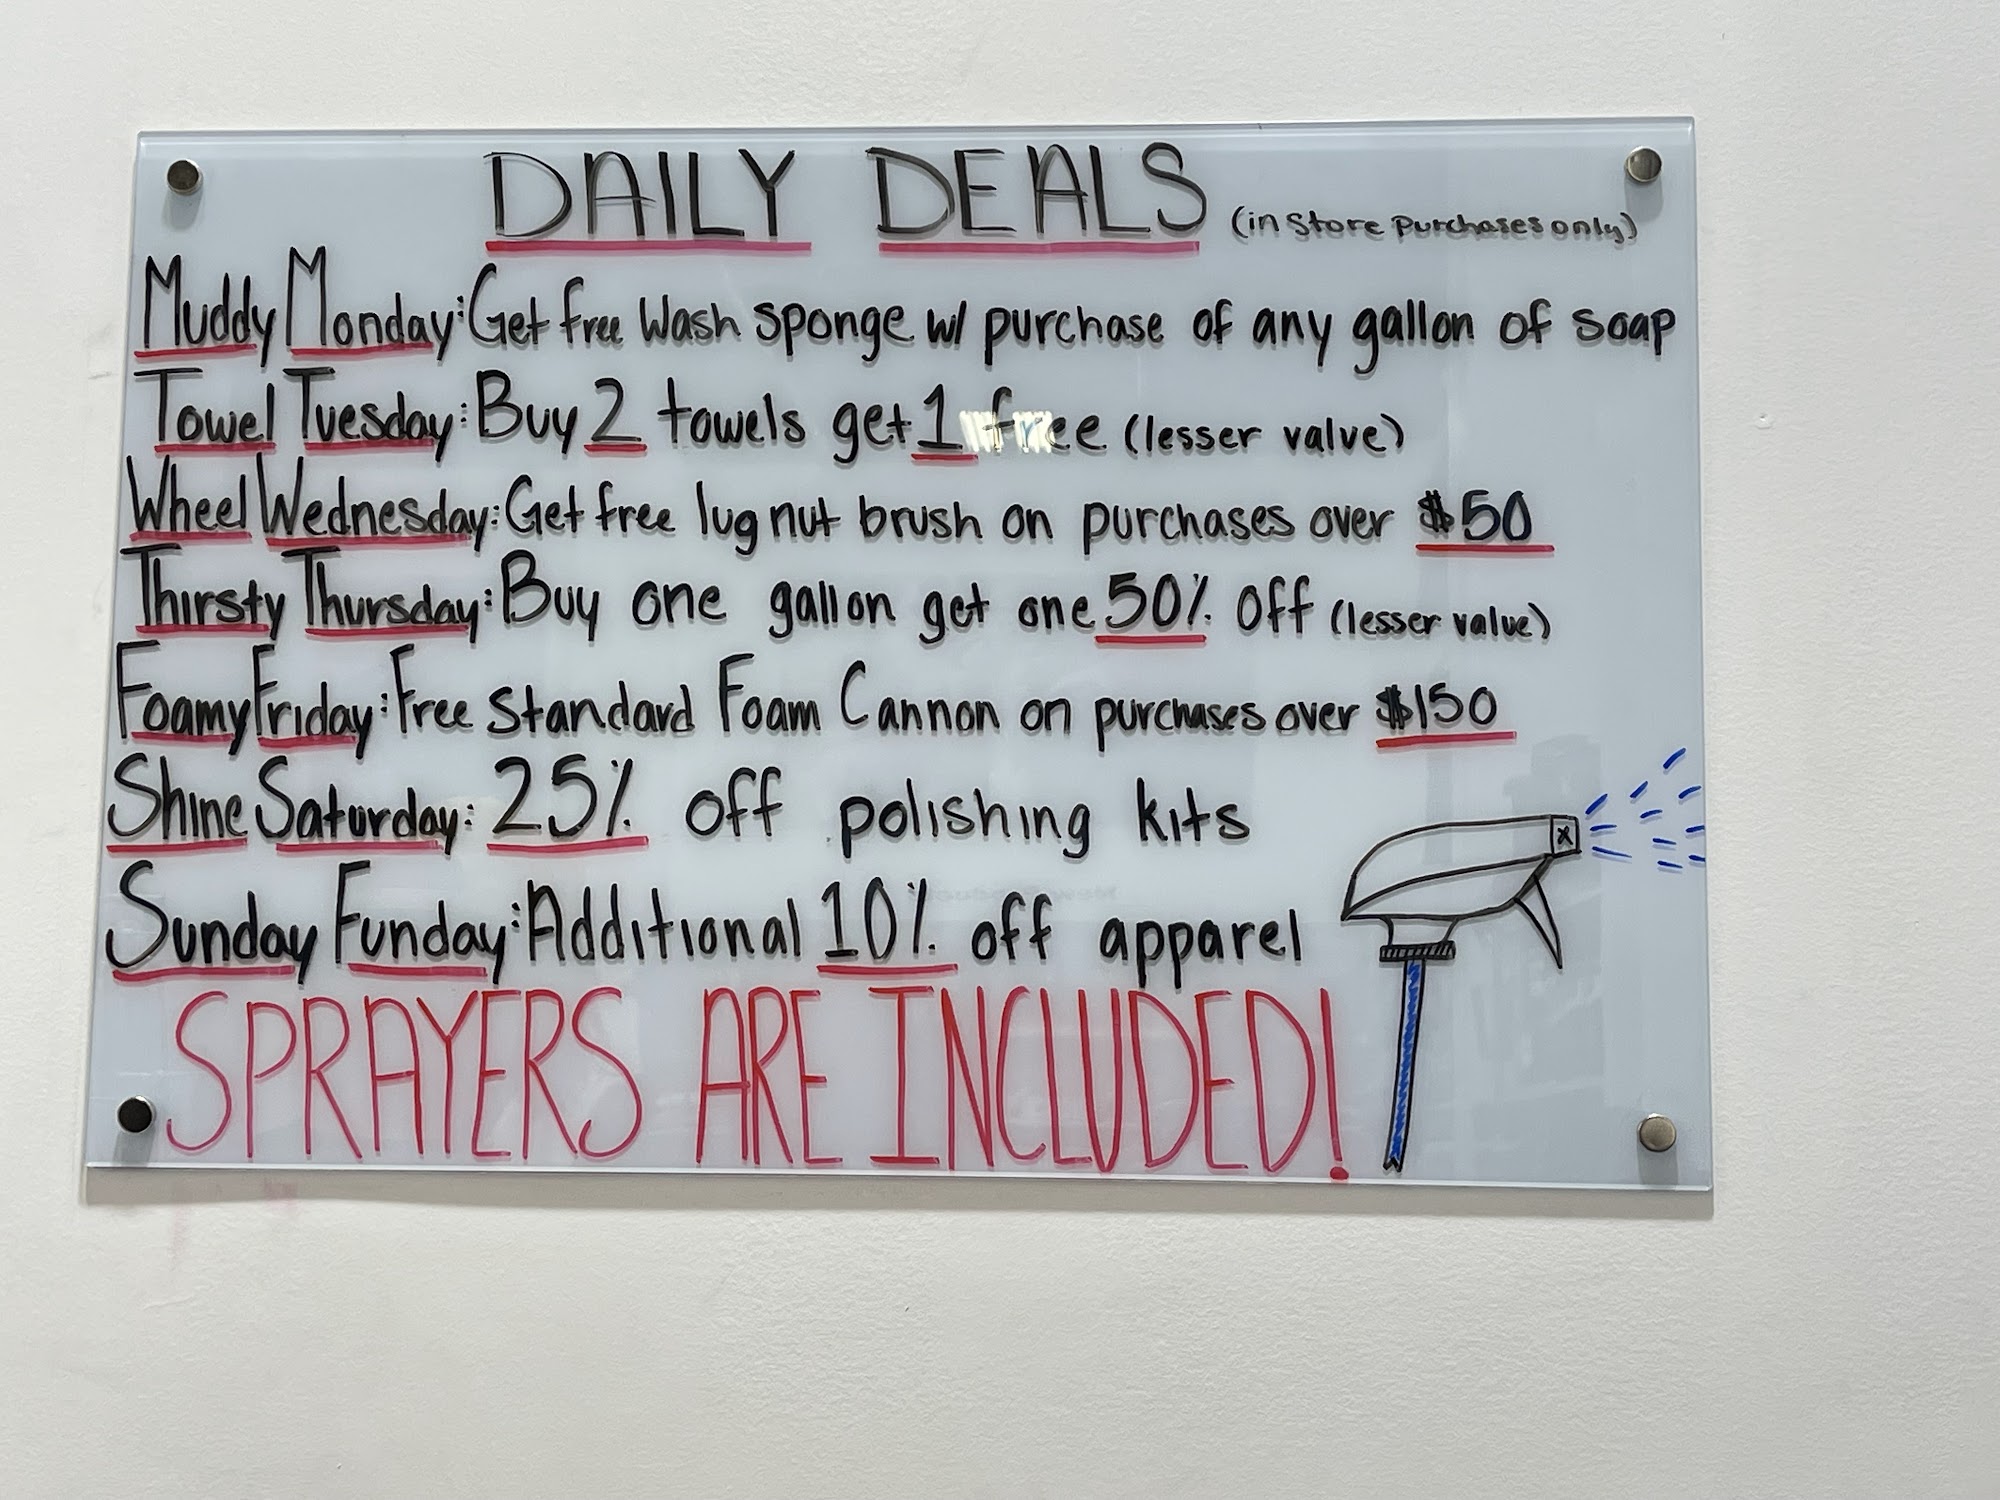 DAILY DEALS (in store purchases only)
Muddy Monday: Get free wash sponge w/ purchase of any gallon of soap
Towel Tuesday: Buy 2 towels get 1 free (lesser value)
Wheel Wednesday: Get free lug nut brush on purchases over $50
Thirsty Thursday: Buy one gallon get one 50% off (lesser value)
Foamy Friday: Free Standard Foam Cannon on purchases over $150
Shine Saturday: 25% off polishing kits
Sunday Funday: Additional 10% off apparel
SPRAYERS ARE INCLUDED!